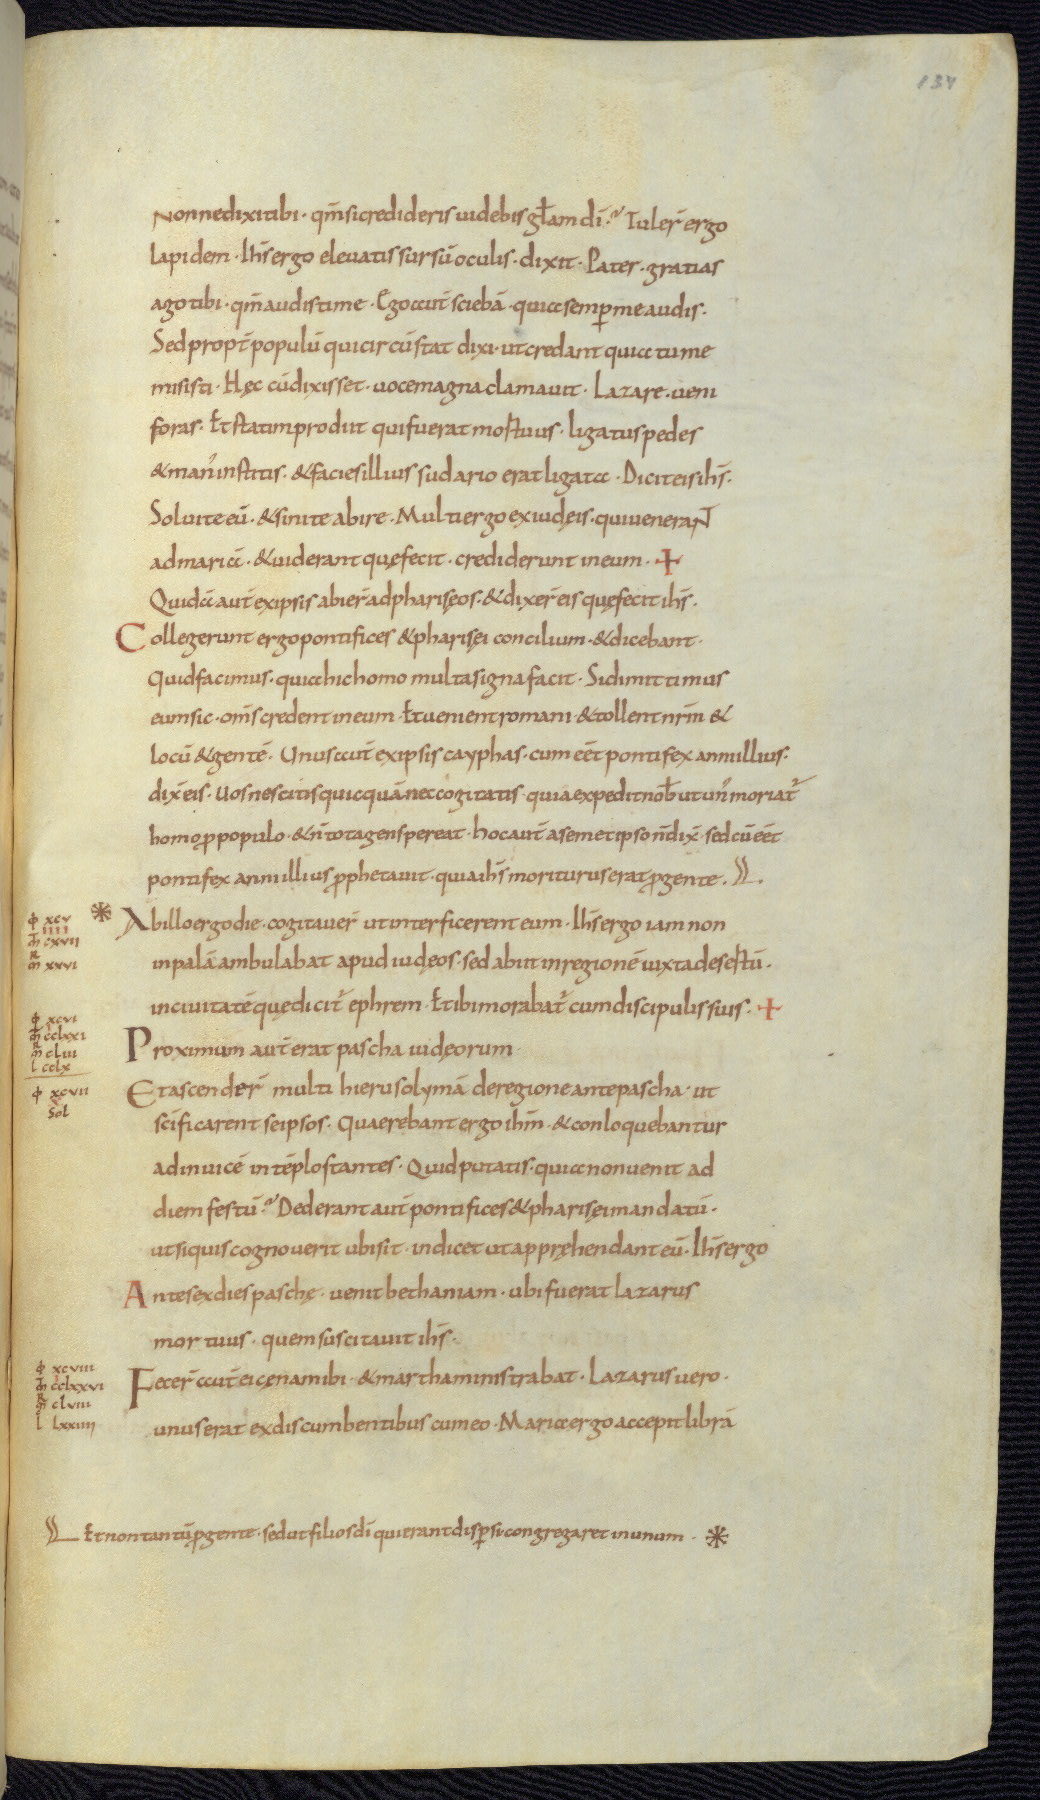 137
Nonne dixi tibi · qm̄ si credideris uidebis glam dī · Tuler̄ ergo
lapidem · Ihs̄ ergo eleuatis sursū oculis · dixit · Pater · gratias
ago tibi · qm̄ audisti me · Ego aut̄ sciebā · quia semp me audis ·
Sed propt̄ populū qui circūstat dixi · ut credant quia tu me
misisti · Hęc cū dixisset · uoce magna clamauit · Lazare · ueni
foras · Et statim prodiit qui fuerat mortuus · ligatus pedes
& man' institis · & facies illius sudario erat ligata · Dicit eis ihs̄ ·
Soluite eū · & sinite abire · Multi ergo ex iudęis · qui uenerant
ad mariā · & uiderant quę fecit · crediderunt in eum · +
Quidā aut̄ ex ipsis abier̄ ad pharisęos · & dixer̄ eis quę fecit ihs̄ ·
Collegerunt ergo pontifices & pharisęi concilium · & dicebant ·
Quid facimus · quia hic homo multa signa facit · Si dimittimus
eum sic · oms̄ credent in eum · Et uenient romani · & tollent nrm̄ &
locū & gentē · Unus aut̄ ex ipsis cayphas · cum eēt pontifex anni illius ·
dix̄ eis · Uos nescitis quicquā nec cogitatis · quia expedit nob̄ ut un' moriat'
homo p populo · & n̄ tota gens pereat · hoc aut̄ a semetipso n̄ dix̄ · sed cū eēt
pontifex anni illius pphetauit · quia ihs̄ moriturus erat p gente ·
Ab illo ergo die · cogitauer̄ ut interficerent eum · Ihs̄ ergo iam non
in palā ambulabat apud iudęos · sed abiit in regionē iuxta desertū ·
in ciuitatē quę dicit' ephrem · Et ibi morabat' cum discipulis suis · +
Proximum aut̄ erat pascha iudęorum ·
Et ascender̄ multi hierusolymā de regione ante pascha · ut
scificarent se ipsos · Quaerebant ergo ihm̄ · & conloquebantur
ad inuicē in tēplo stantes · Quid putatis · quia non uenit ad
diem festū · Dederant aut̄ pontifices & pharisęi mandatū ·
ut si quis cognouerit ubi sit · indicet ut appręhendant eū · Ihs̄ ergo
Ante sex dies paschę · uenit bethaniam · ubi fuerat lazarus
mortuus · quem suscitauit ihs̄ ·
Fecer̄ aut̄ ei cęnam ibi · & martha ministrabat · Lazarus uero ·
unus erat ex discumbentibus cum eo · Maria ergo accepit librā
Et non tantū p gente · sed ut filios dī qui erant dispsi · congregaret in unum ·
xcv
iiii
cxvii
xxvi
xcvi
cclxxi
clui
l cclx
xcvii
Sol
xcviii
cclxxvi
clviii
l lxxiiii